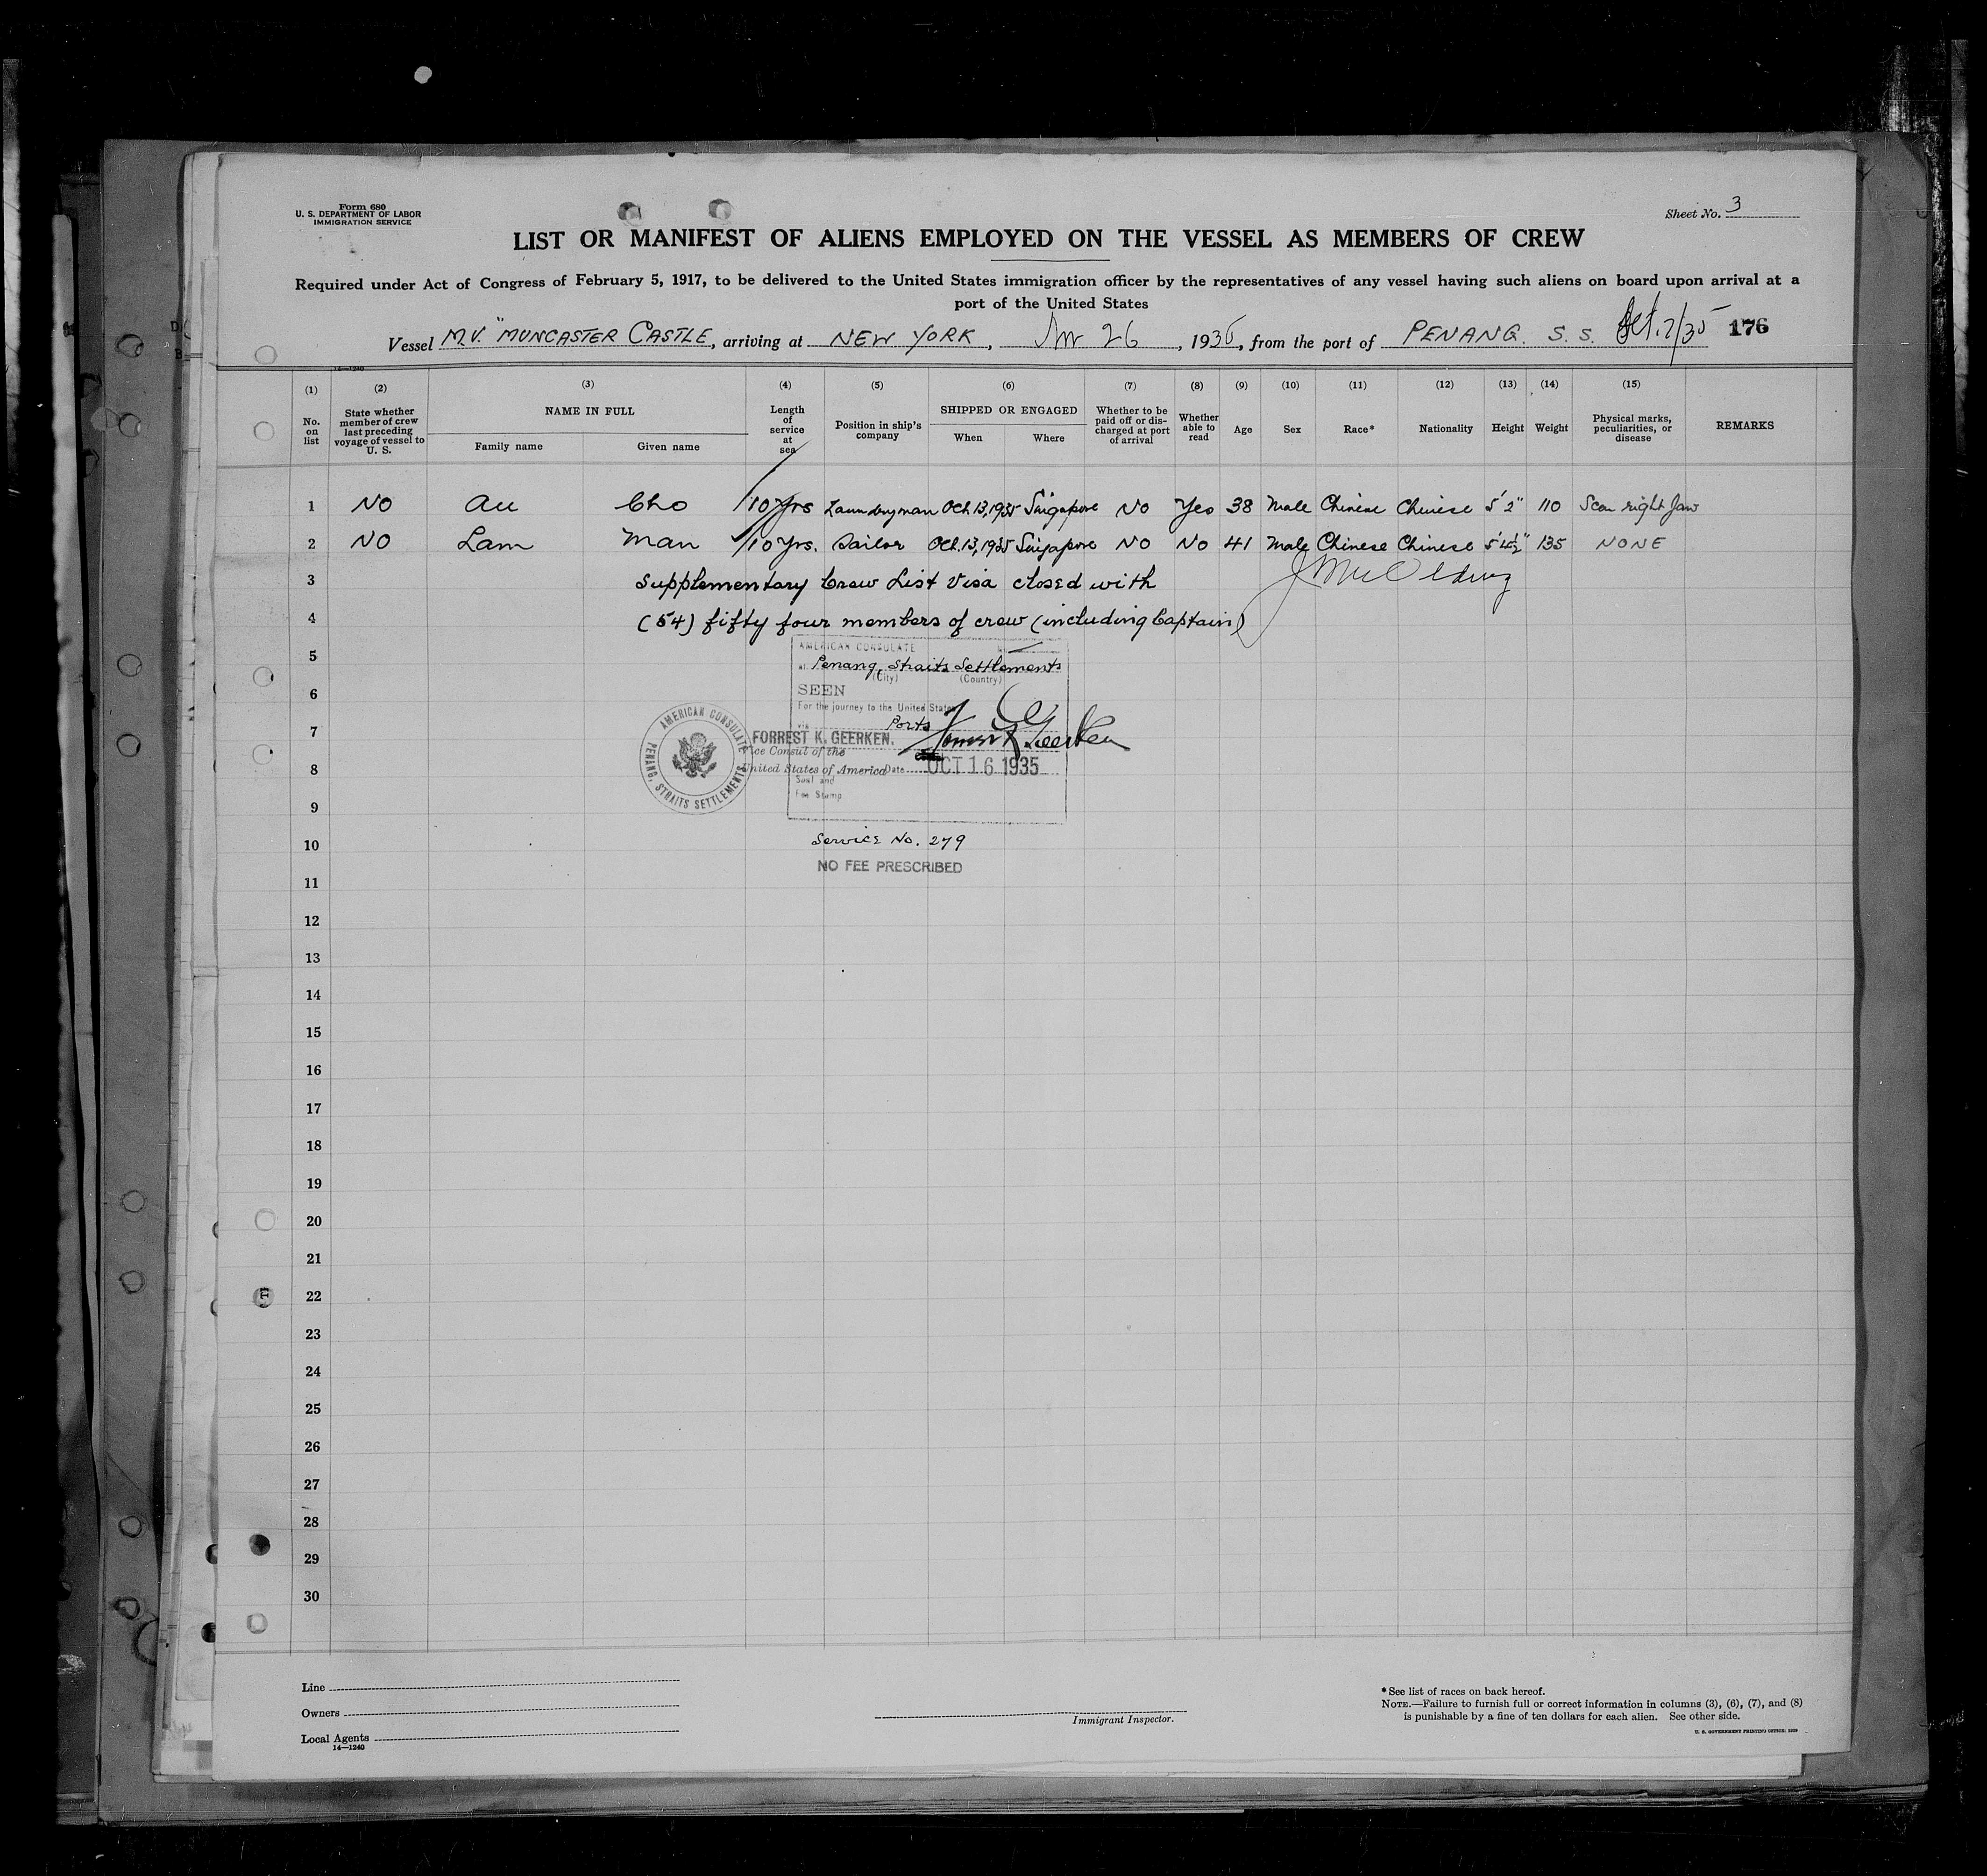 Form 680
U. S. DEPARTMENT OF LABOR
IMMIGRATION SERVICE
Sheet No. 3
LIST OR MANIFEST OF ALIENS EMPLOYED ON THE VESSEL AS MEMBERS OF CREW
Required under Act of Congress of February 5, 1917, to be delivered to the United States immigration officer by the representatives of any vessel having such aliens on board upon arrival at a
port of the United States
Vessel M.V. "MUNCASTER CASTLE, arriving at NEW YORK, 26, 1935, from the port of PENANG. S. S. 176
14—1240
(1) (2) (3) (4) (5) (6) (7) (8) (9) (10) (11) (12) (13) (14) (15)
No. on list
State whether member of crew last preceding voyage of vessel to U. S.
NAME IN FULL
Family name
Given name
Length of service at sea
Position in ship's company
SHIPPED OR ENGAGED
When
Where
Whether to be paid off or discharged at port of arrival
Whether able to read
Age
Sex
Race*
Nationality
Height
Weight
Physical marks, peculiarities, or disease
REMARKS
1 NO Au Cho 10 Yrs Laundryman Oct. 13, 1935 Singapore NO Yes 38 Male Chinese Chinese 5' 2" 110 Scar right Jaw
2 NO Lam Man 10 Yrs. Sailor Oct. 13, 1935 Singapore NO NO 41 Male Chinese Chinese 5' 4½" 135 NONE
3 Supplementary Crew List Visa closed with
4 (54) fifty four members of crew (including Captain)
5
AMERICAN CONSULATE
at Penang, Straits Settlements
(City) (Country)
6
SEEN
For the journey to the United States
via Ports
7
FORREST K. GEERKEN.
Forrest K Geerken
Vice Consul of the
8
United States of America
Date OCT 16 1935
Seal and
Fee Stamp
AMERICAN CONSULATE
PENANG, STRAITS SETTLEMENTS
9
10
Service No. 279
NO FEE PRESCRIBED
11
12
13
14
15
16
17
18
19
20
21
22
23
24
25
26
27
28
29
30
Line
Owners
Local Agents
14—1240
Immigrant Inspector.
*See list of races on back hereof.
NOTE.—Failure to furnish full or correct information in columns (3), (6), (7), and (8)
is punishable by a fine of ten dollars for each alien. See other side.